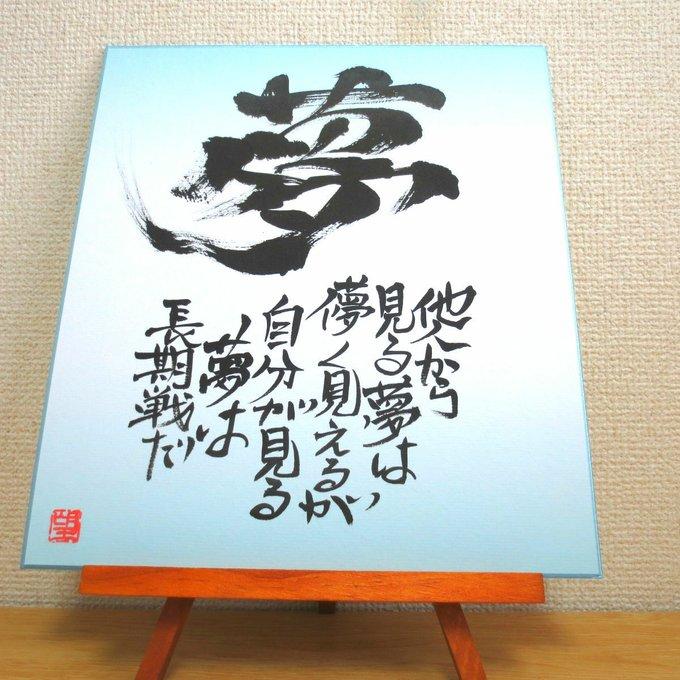 夢
他人から
見る夢は
儚く見えるが
自分が見る
夢は
長期戦だ